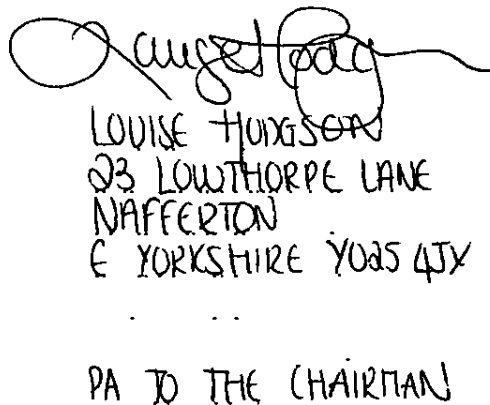 LOUISE HUDGSON
23 LOWTHORPE LANE
NAFFERTON
E YORKSHIRE YO25 4JX
PA TO THE CHAIRMAN